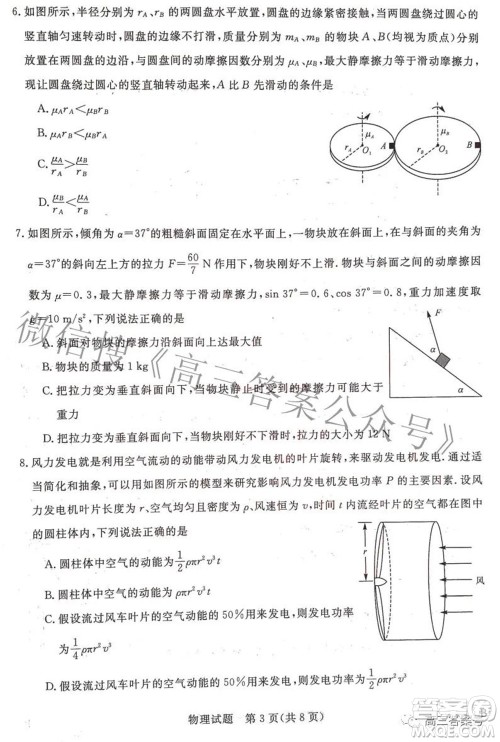 6.如图所示,半径分别为rA、rB的两圆盘水平放置,圆盘的边缘紧密接触,当两圆盘绕过圆心的
竖直轴匀速转动时,圆盘的边缘不打滑,质量分别为mA、mB的物块A、B(均视为质点)分别
放置在两圆盘的边沿,与圆盘间的动摩擦因数分别为μA、μB,最大静摩擦力等于滑动摩擦力,
现让圆盘绕过圆心的竖直轴转动起来,A比B先滑动的条件是
A.μArA<μBrB
B.μArB<μBrA
C.μA/rA>μB/rB
D.μA/rA<μB/rB
μA
rA
O1
A
μB
rB
O2
B
7.如图所示,倾角为α=37°的粗糙斜面固定在水平面上,一物块放在斜面上,在与斜面的夹角为
α=37°的斜向左上方的拉力F=60/7 N作用下,物块刚好不上滑,物块与斜面间的动摩擦因
数为μ=0.3,最大静摩擦力等于滑动摩擦力,sin 37°=0.6、cos 37°=0.8,重力加速度取
g=10 m/s²,下列说法正确的是
A.斜面对物块的摩擦力沿斜面向上达最大值
B.物块的质量为1 kg
C.把拉力变为垂直斜面向下,当物块静止时受到的摩擦力可能大于
重力
D.把拉力变为垂直斜面向下,当物块刚好不下滑时,拉力的大小为12 N
F
α
α
8.风力发电就是利用空气流动的动能带动风力发电机的叶片旋转,来驱动发电机发电.通过适
当简化和抽象,可以用如图所示的模型来研究影响风力发电机发电功率P的主要因素.设风
力发电机的叶片长度为r、空气均匀且密度为ρ、风速恒为v,时间t内流经叶片的空气都在图中
的圆柱体内,下列说法正确的是
A.圆柱体中空气的动能为1/2 ρπr²v³t
B.圆柱体中空气的动能为1/2 ρπr²v²t
C.假设流过风车叶片的空气动能的50%用来发电,则发电功率
为1/4 ρπr²v³
D.假设流过风车叶片的空气动能的50%用来发电,则发电功率为1/2 ρπr²v³
r
风
物理试题 第3页(共8页)
微信搜《高三答案公众号》
高三答案号